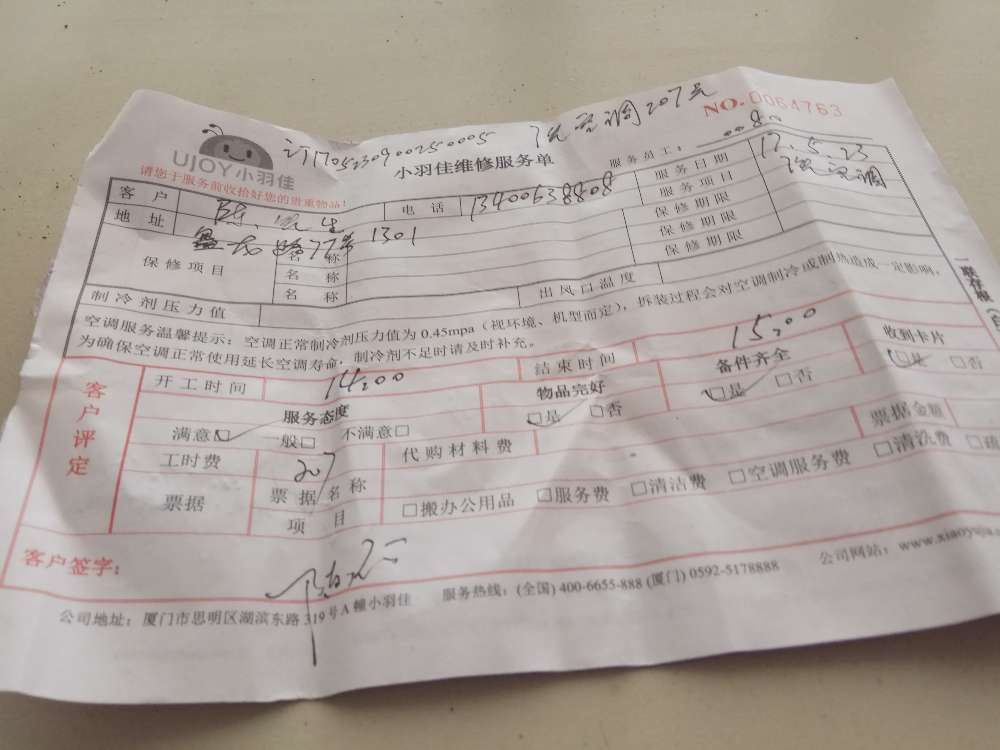 订1705230900250005 洗空调207元
NO.0064763
UJOY小羽佳
小羽佳维修服务单
服务员工：
请您于服务前收拾好您的贵重物品！
客户 陈先生 电话 13400638808 服务日期 17.5.23
地址 盘龙路77号1301 服务项目 洗空调
保修项目
名称 保修期限
名称 保修期限
名称 保修期限
制冷剂压力值 出风口温度
空调服务温馨提示：空调正常制冷剂压力值为0.45mpa（视环境、机型而定），拆装过程会对空调制冷或制热造成一定影响，
为确保空调正常使用延长空调寿命，制冷剂不足时请及时补充。
客户评定
开工时间 14:00 结束时间 15:00
服务态度 物品完好 备件齐全 收到卡片
满意□ 一般□ 不满意□ □是 □否 □是 □否 □是 □否
工时费 207 代购材料费 票据金额
票据 票据名称 □搬办公用品 □服务费 □清洁费 □空调服务费 □清洗费
项目
客户签字：
公司地址：厦门市思明区湖滨东路319号A幢小羽佳 服务热线：(全国) 400-6655-888 (厦门) 0592-5178888 公司网站：www.xiaoyujia.
一联存根